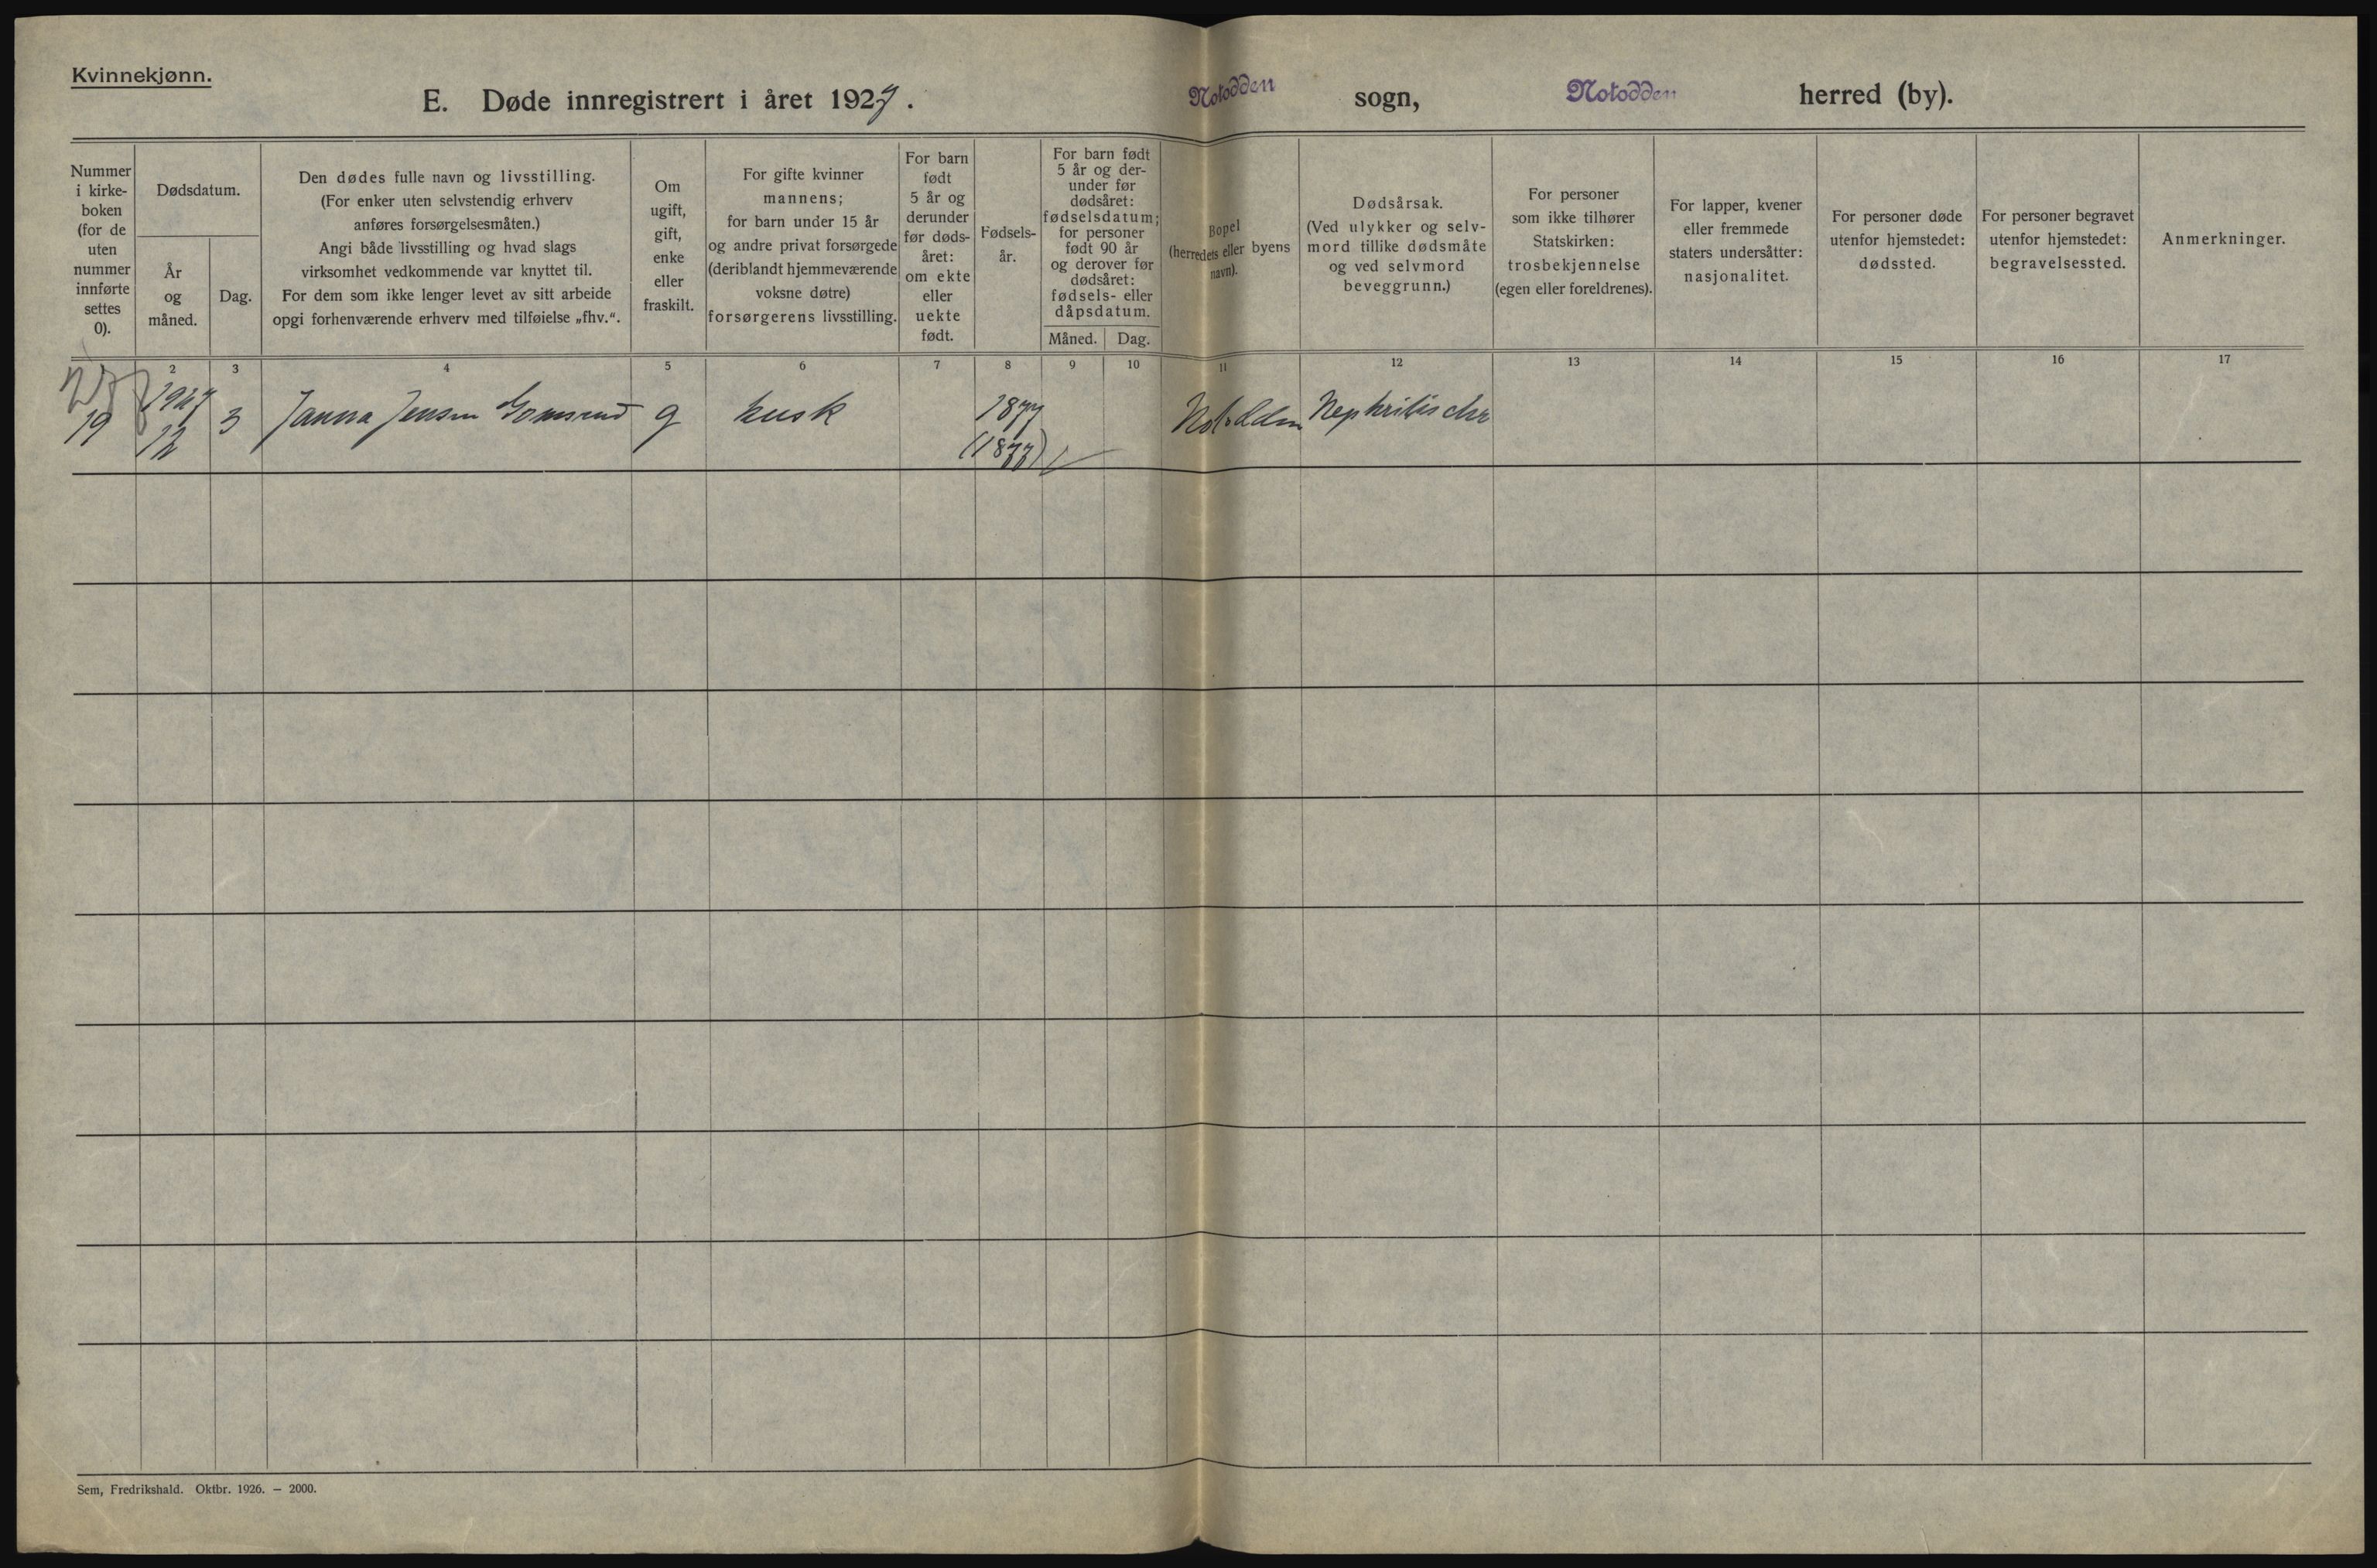 Kvinnekjønn.
E. Døde innregistrert i året 1927.
Notodden sogn, Notodden herred (by).
Nummer
i kirke-
boken
(for de
uten
nummer
innførte
settes
0).
Dødsdatum.
År
og
måned.
Dag.
Den dødes fulle navn og livsstilling.
(For enker uten selvstendig erhverv
anføres forsørgelsesmåten.)
Angi både livsstilling og hvad slags
virksomhet vedkommende var knyttet til.
For dem som ikke lenger levet av sitt arbeide
opgi forhenværende erhverv med tilføielse „fhv.“.
Om
ugift,
gift,
enke
eller
fraskilt.
For gifte kvinner
mannens;
for barn under 15 år
og andre privat forsørgede
(deriblandt hjemmeværende
voksne døtre)
forsørgerens livsstilling.
For barn
født
5 år og
derunder
før døds-
året:
om ekte
eller
uekte
født.
Fødsels-
år.
For barn født
5 år og der-
under før
dødsåret:
fødselsdatum;
for personer
født 90 år
og derover før
dødsåret:
fødsels- eller
dåpsdatum.
Måned. Dag.
Bopel
(herredets eller byens
navn).
Dødsårsak.
(Ved ulykker og selv-
mord tillike dødsmåte
og ved selvmord
beveggrunn.)
For personer
som ikke tilhører
Statskirken:
trosbekjennelse
(egen eller foreldrenes).
For lapper, kvener
eller fremmede
staters undersåtter:
nasjonalitet.
For personer døde
utenfor hjemstedet:
dødssted.
For personer begravet
utenfor hjemstedet:
begravelsessted.
Anmerkninger.
2 3 4 5 6 7 8 9 10 11 12 13 14 15 16 17
1927
19 12 3 Janna Jensen Gomsrud g kusk 1877 Notodden Nephritis chr
(1877)
Sem, Fredrikshald. Oktbr. 1926. — 2000.